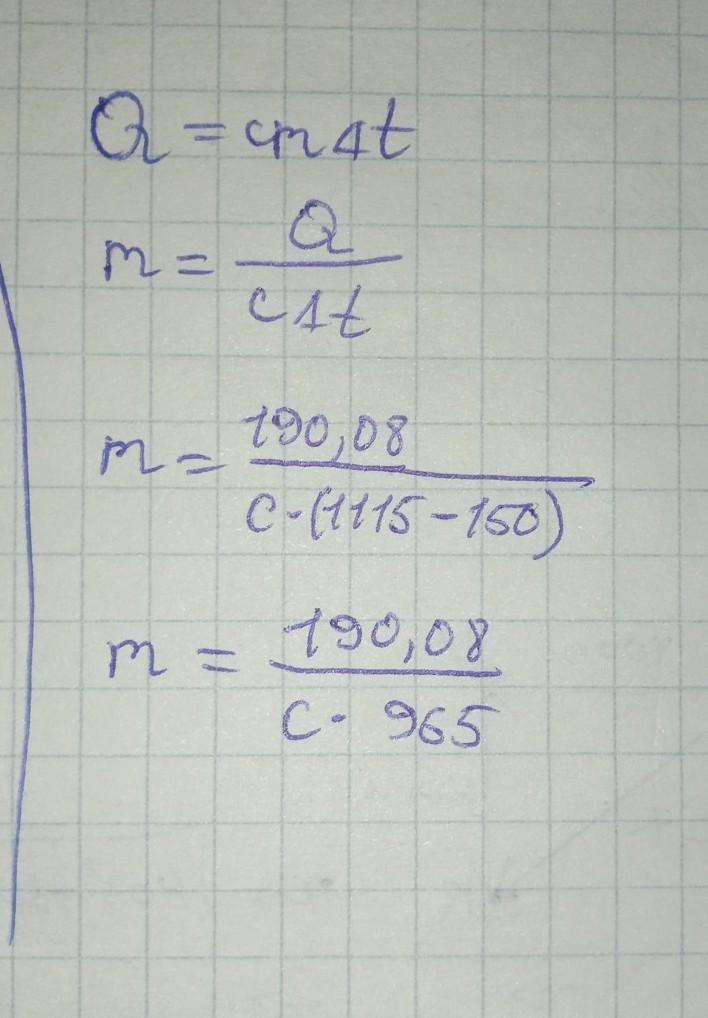 Q = cmΔt
m = Q / cΔt
m = 190,08 / c·(1115-150)
m = 190,08 / c· 965